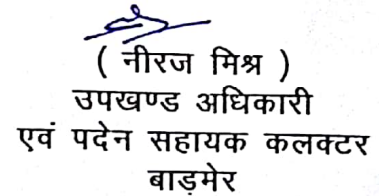 ( नीरज मिश्र )
उपखण्ड अधिकारी
एवं पदेन सहायक कलक्टर
बाड़मेर